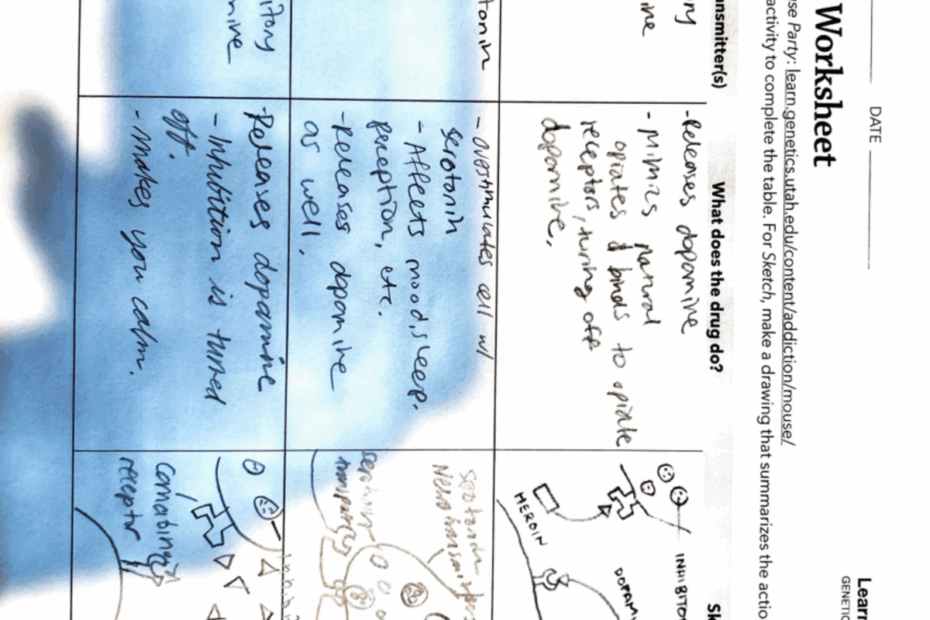 DATE
Worksheet
Learn
GENETIC
se Party: learn.genetics.utah.edu/content/addiction/mouse/
activity to complete the table. For Sketch, make a drawing that summarizes the actio
ansmitter(s)
What does the drug do?
Sk
ory
ine
- Releases dopamine
- Mimics natural
opiates & binds to opiate
receptors, turing off
dopamine.
INHIBITO
HEROIN
DOPAM
tonin
- overstimulates cell w/
serotonin
- Affects mood, sleep.
peeption, etc.
- Releases dopamine
as well.
serotonin
itory
mine
- Releases dopamine
- Inhibition is turned
off.
- makes you calm.
receptor